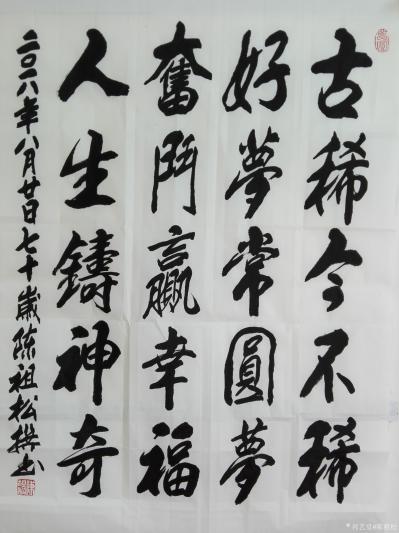 古稀今不稀
好夢常圓夢
奮鬥贏幸福
人生鑄神奇
二〇一八年八月廿日七十歲陳祖松撰书